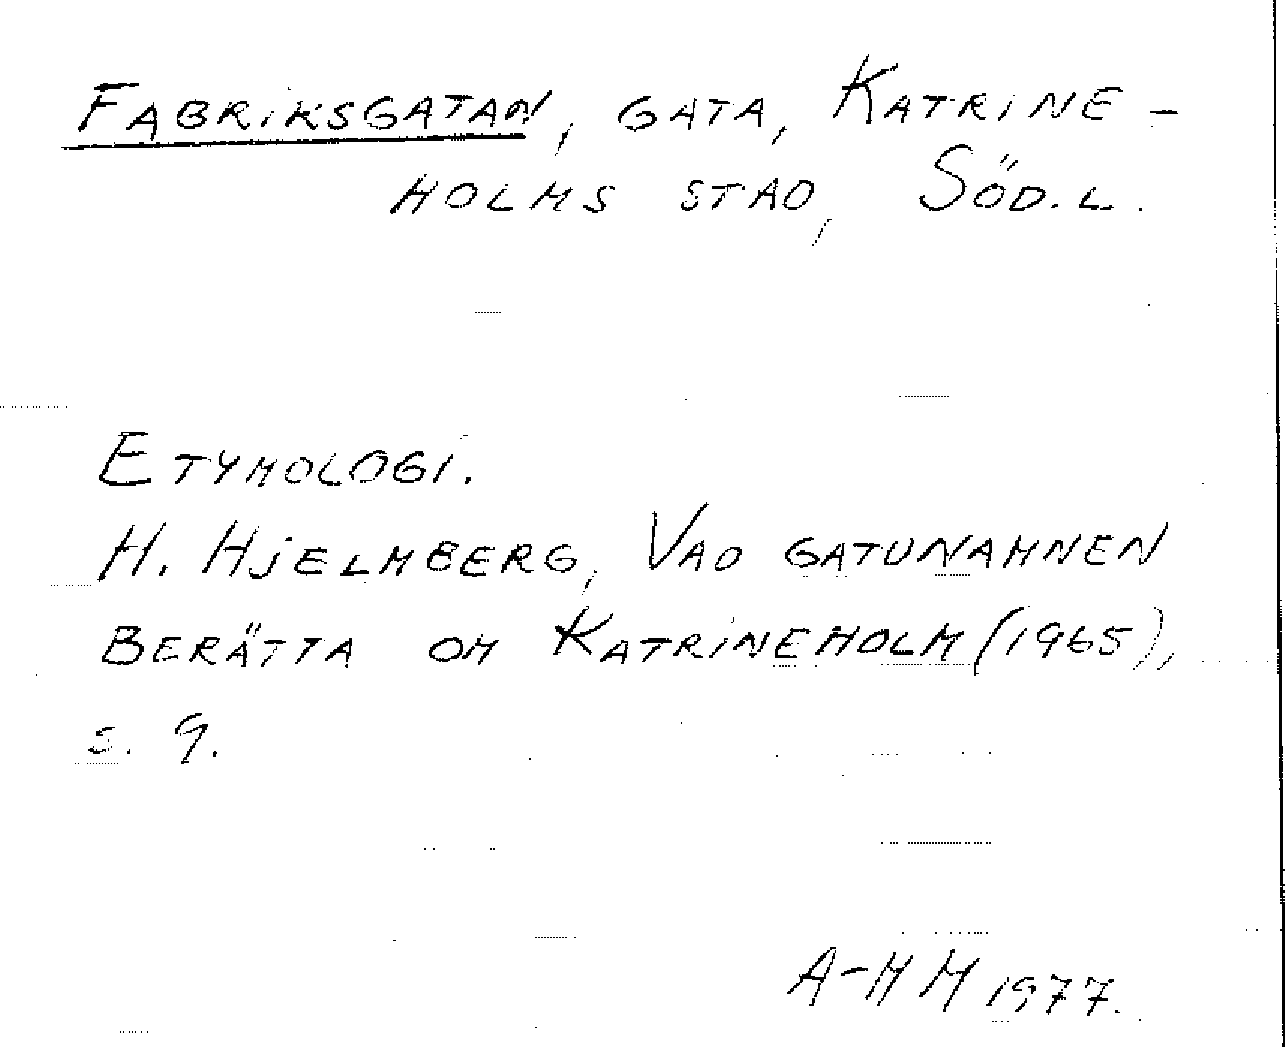 FABRIKSGATAN, GATA, KATRINE-
HOLMS STAD, SÖD.L.
ETYMOLOGI.
H. HJELMBERG, VAD GATUNAMNEN
BERÄTTA OM KATRINEHOLM (1965),
S. 9.
A-MM 1977.